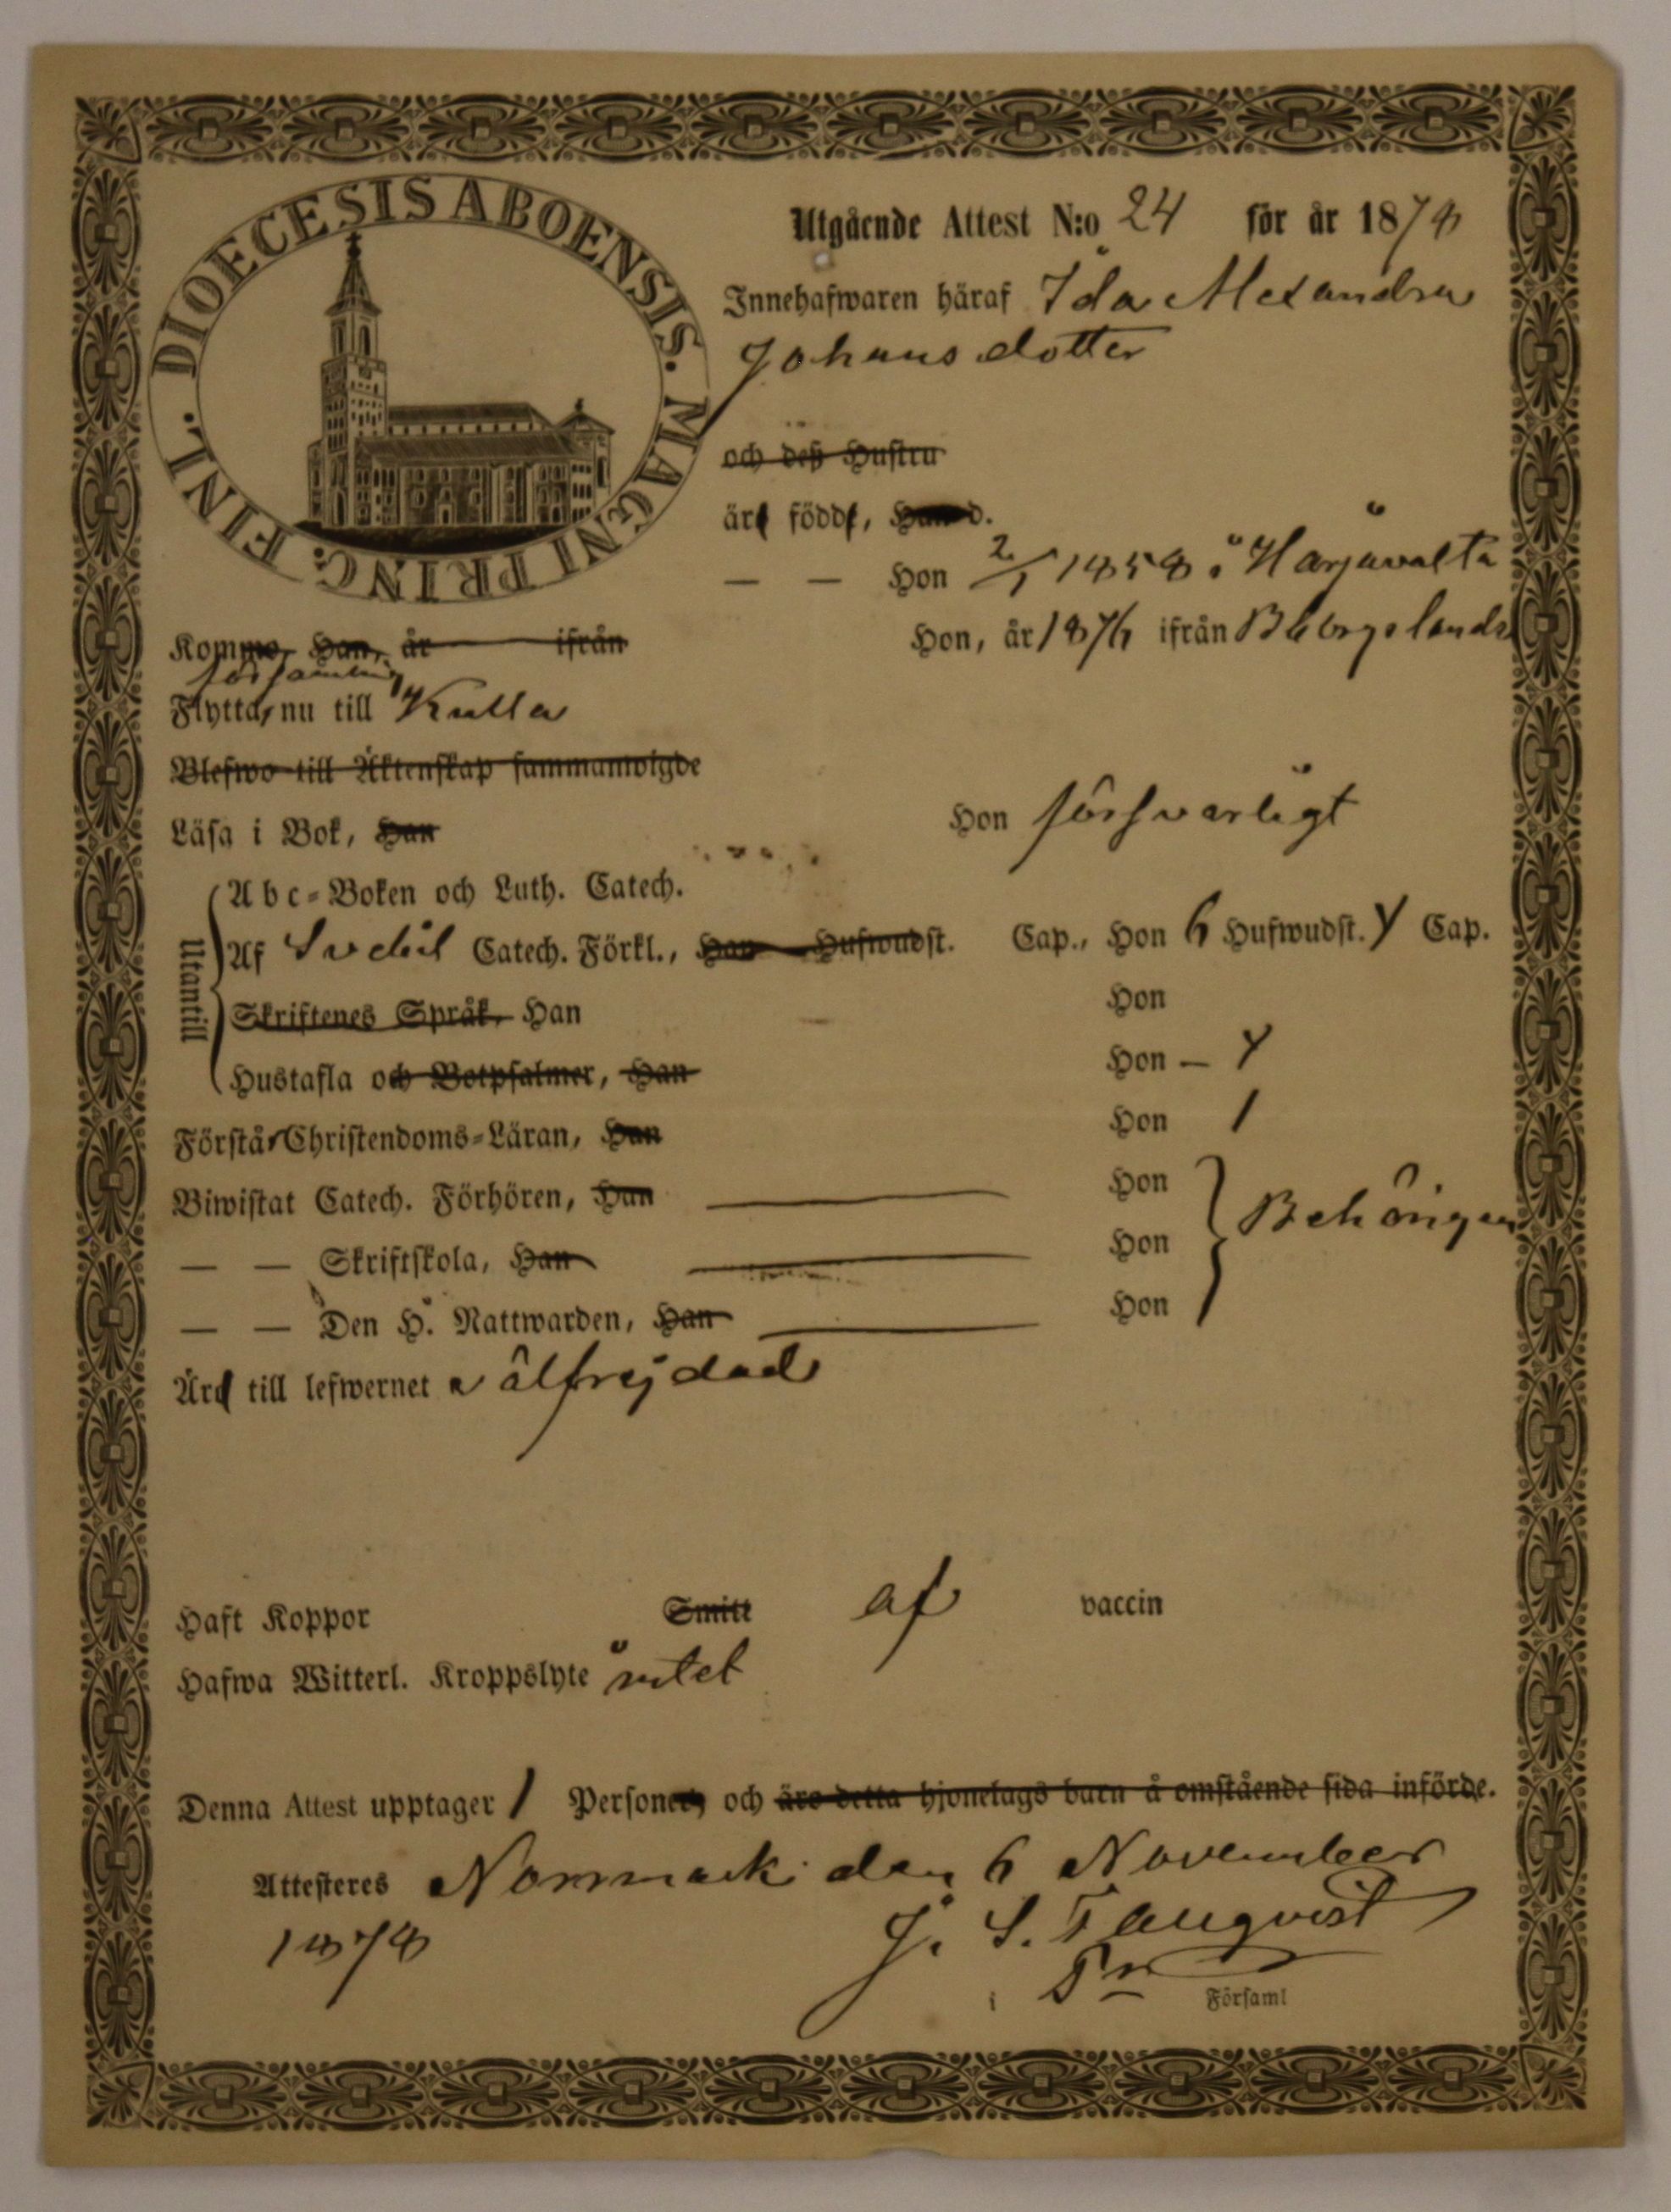 DIOECESIS ABOENSIS. MAGNI PRINC. FINL.
Utgående Attest N:o 24 för år 1878
Innehafwaren häraf Ida Alexandra
Johansdotter
och deß Hustru
äro född, Han d.
— — Hon 2/1 1858 i Harjavalta
Komma, Han, år ifrån Hon, år 1876 ifrån B:borgs lands
församling
Flytta, nu till Kulla
Blefwo till Äktenskap sammanwigde
Läsa i Bok, Han Hon försvarligt
Utantill
Abc-Boken och Luth. Catech.
Af Svebil Catech. Förkl., Han Hufwudst. Cap., Hon 6 Hufwudst. Y Cap.
Skriftenes Språk, Han Hon
Hustafla och Botpsalmer, Han Hon — Y
Förstår Christendoms-Läran, Han Hon /
Biwistat Catech. Förhören, Han Hon
— — Skriftskola, Han Hon Behörigen
— — Den H. Nattwarden, Han Hon
Äro till lefwernet välfrejdad
Haft Koppor Smitt af vaccin
Hafwa Witterl. Kroppslyte intet
Denna Attest upptager 1 Personer, och äro detta hjonelags barn å omstående sida införde.
Attesteres Norrmark den 6 November
1878 J. S.
i Församl